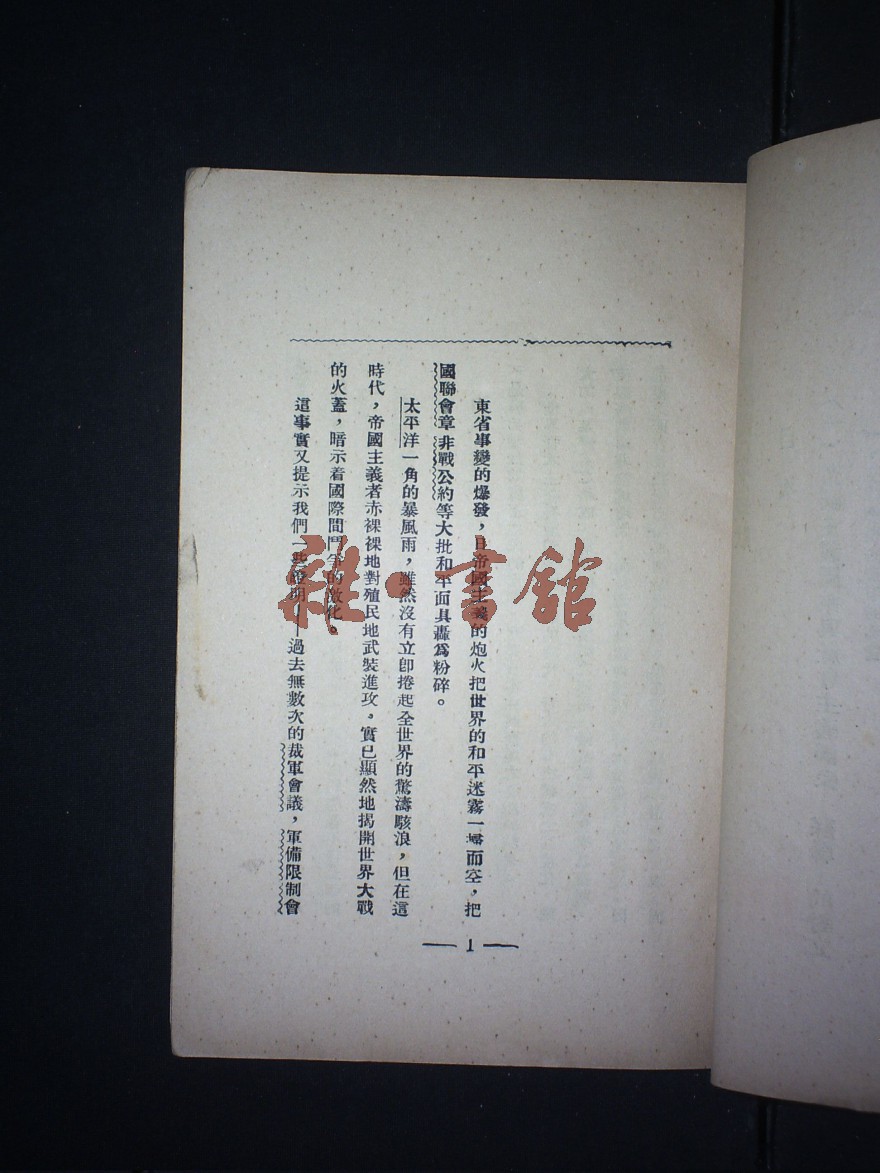 東省事變的爆發，日帝國主義的炮火把世界的和平迷霧一掃而空，把
國聯會章非戰公約等大批和平面具轟爲粉碎。
太平洋一角的暴風雨，雖然沒有立卽捲起全世界的驚濤駭浪，但在這
時代，帝國主義者赤裸裸地對殖民地武裝進攻。實已顯然地揭開世界大戰
的火蓋，暗示着國際間鬥爭的激化。
這事實又提示我們一些證明——過去無數次的裁軍會議，軍備限制會
— 1 —
雜·書館